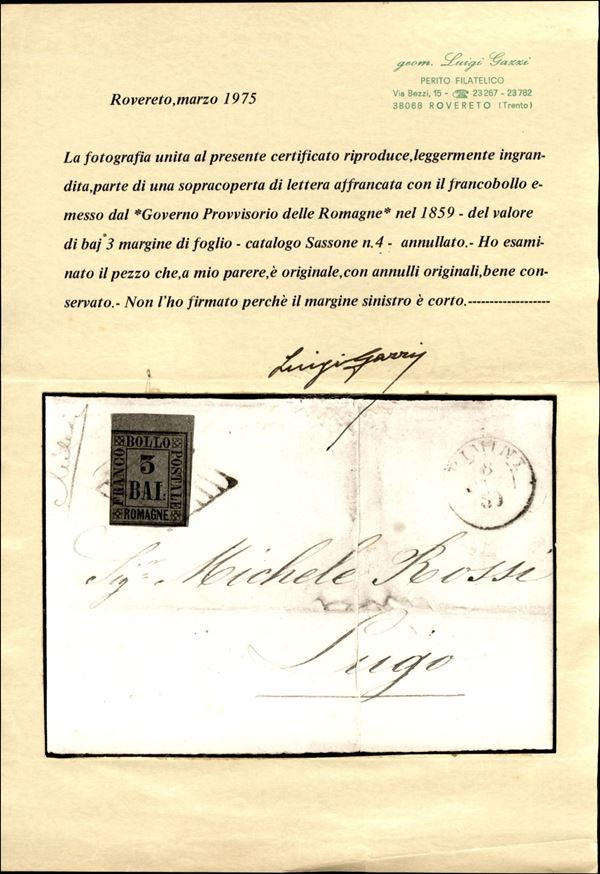 geom. Luigi Gazzi
PERITO FILATELICO
Via Bezzi, 15 - ☎ 23267 - 23782
38068 ROVERETO (Trento)
Rovereto,marzo 1975
La fotografia unita al presente certificato riproduce,leggermente ingran-
dita,parte di una sopracoperta di lettera affrancata con il francobollo e-
messo dal *Governo Provvisorio delle Romagne* nel 1859 - del valore
di baj 3 margine di foglio - catalogo Sassone n.4 - annullato.- Ho esami-
nato il pezzo che,a mio parere,è originale,con annulli originali,bene con-
servato.- Non l'ho firmato perchè il margine sinistro è corto.-------------------
Luigi Gazzi
FRANCO
BOLLO
POSTALE
3
BAI:
ROMAGNE
RIMINI
8
Sigr Michele Rossi
Lugo